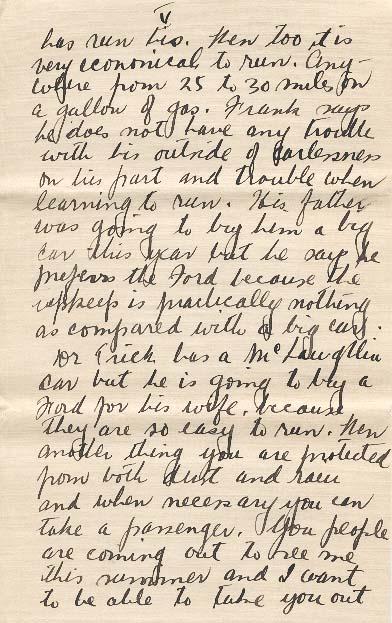 V
has run his. Then too it is
very economical to run. Any-
where from 25 to 30 miles on
a gallon of gas. Frank says
he does not have any trouble
with his outside of carlessness
on his part and trouble when
learning to run. His father
was going to buy him a big
car this year but he says he
prefers the Ford because the
upkeep is practically nothing
as compared with a big car.
Dr Erick has a McLaughlin
car but he is going to buy a
Ford for his wife, because
they are so easy to run. Then
another thing you are protected
from both dust and rain
and when necessary you can
take a passenger. You people
are coming out to see me
this summer and I want
to be able to take you out